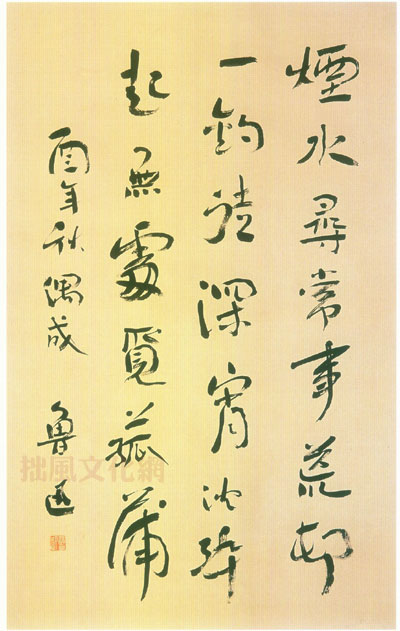 煙水尋常事荒邨
一釣徒深宵沈醉
起無處覓菰蒲
酉年秋偶成 魯迅
拙風文化網